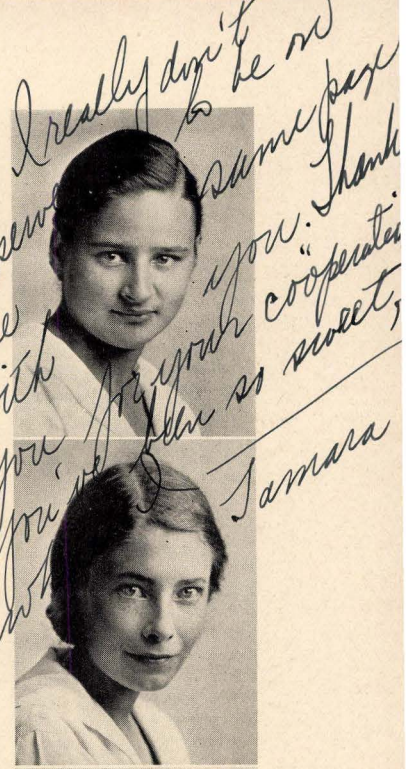 I really don't
serve to be on
e same page
ith you. Thank
you for your coöperati
You've been so sweet,
Tamara